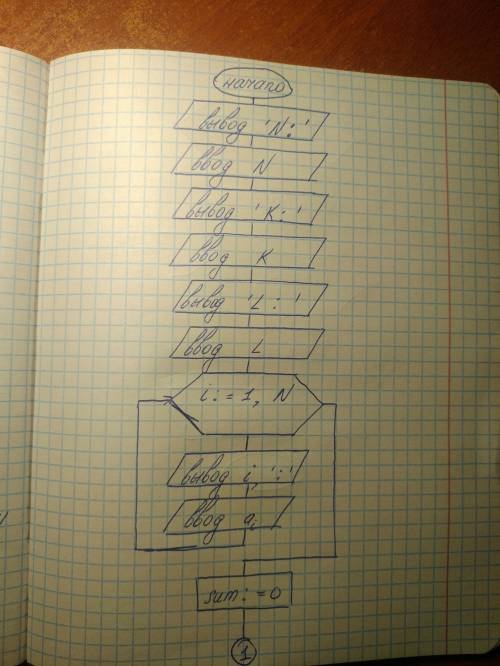 начало
вывод 'N:'
ввод N
вывод 'K:'
ввод K
вывод 'L:'
ввод L
i:=1, N
вывод i, ':'
ввод ai
sum:=0
1